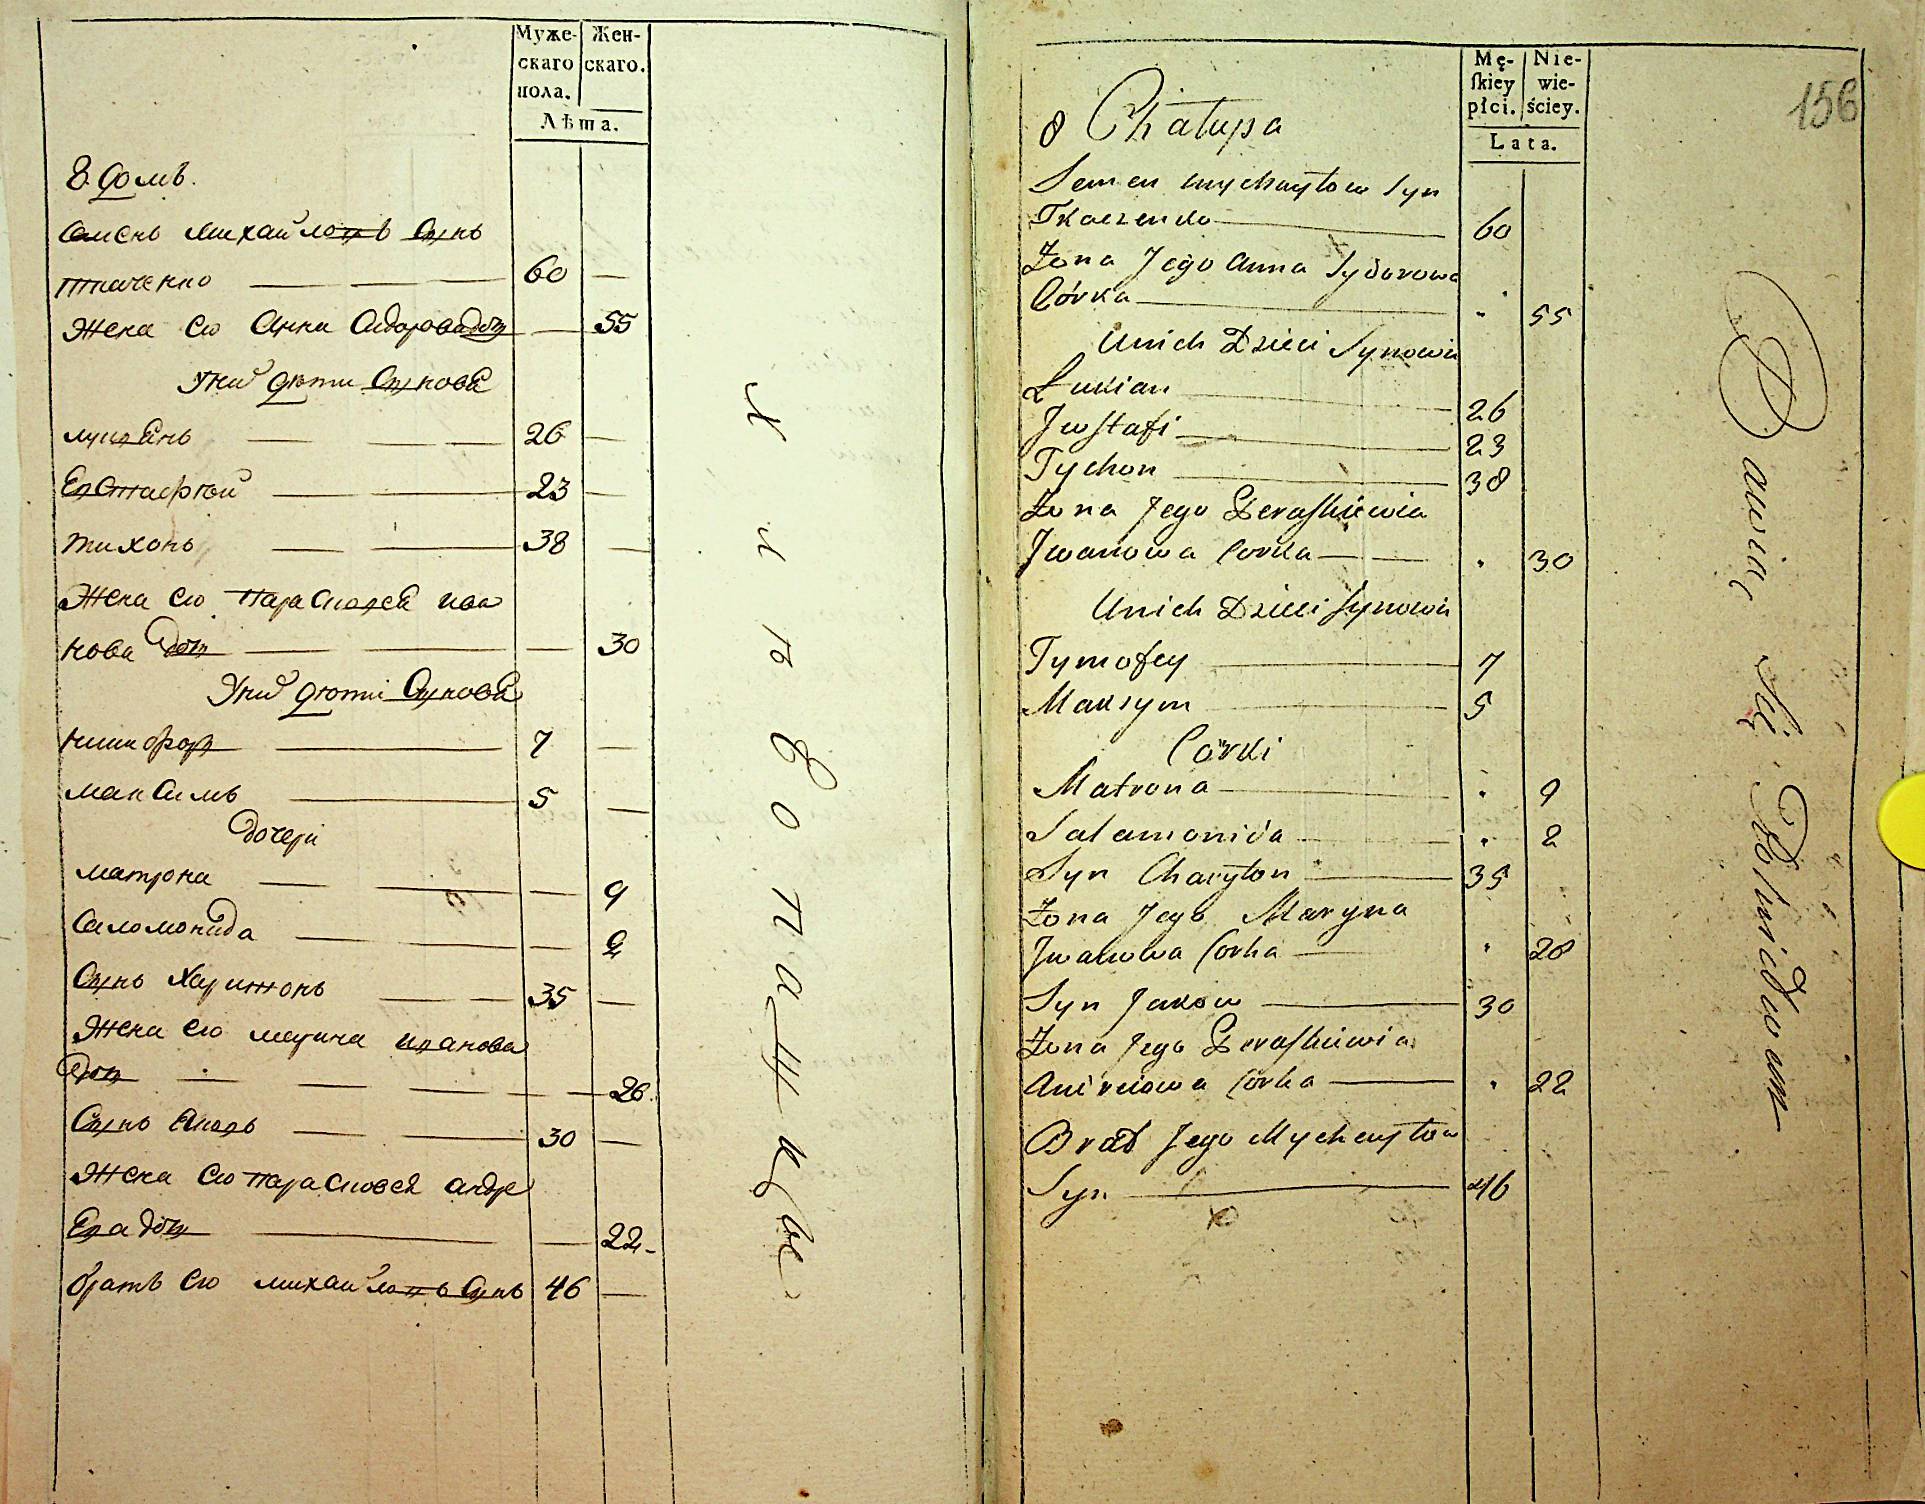 Муже-
скаго
пола.
Жен-
скаго.
Лѣта.
8 домъ
Семенъ Михайловъ Сынъ
Ткаченко 60
Жена его Анна Сидорова доч 55
У них дети Сынове
Лукіянъ 26
Евстафтей 23
Тихонъ 38
Жена его Парасковея Ива
нова доч 30
У них дети Сынове
Никифор 7
Максимъ 5
дочери
Матрона 9
Саломонида 2
Сынъ Харитонъ 35
Жена его Марина Иванова
доч 28
Сынъ Яковъ 30
Жена его Парасковея Андре
ева доч 22
братъ его Михайловъ Сынъ 46
Męskiey
płci.
Nie-
wie-
ściey.
Lata.
156
8 Chałupa
Semen Mychayłow Syn
Tkaczenko 60
Żona Jego Anna Sydorowa
Córka 55
Unich Dzieci Synowie
Łukian 26
Jwstafi 23
Tychon 38
Żona Jego Peraskiewia
Jwanowa Corka 30
Unich Dzieci Synowie
Tymofey 7
Maksym 5
Córki
Matrona 9
Salamonida 2
Syn Charyton 35
Żona Jego Maryna
Jwanowa Corka 28
Syn Jakow 30
Żona Jego Peraskiewia
Andreiowa Corka 22
Brat Jego Mychayłow
Syn 46